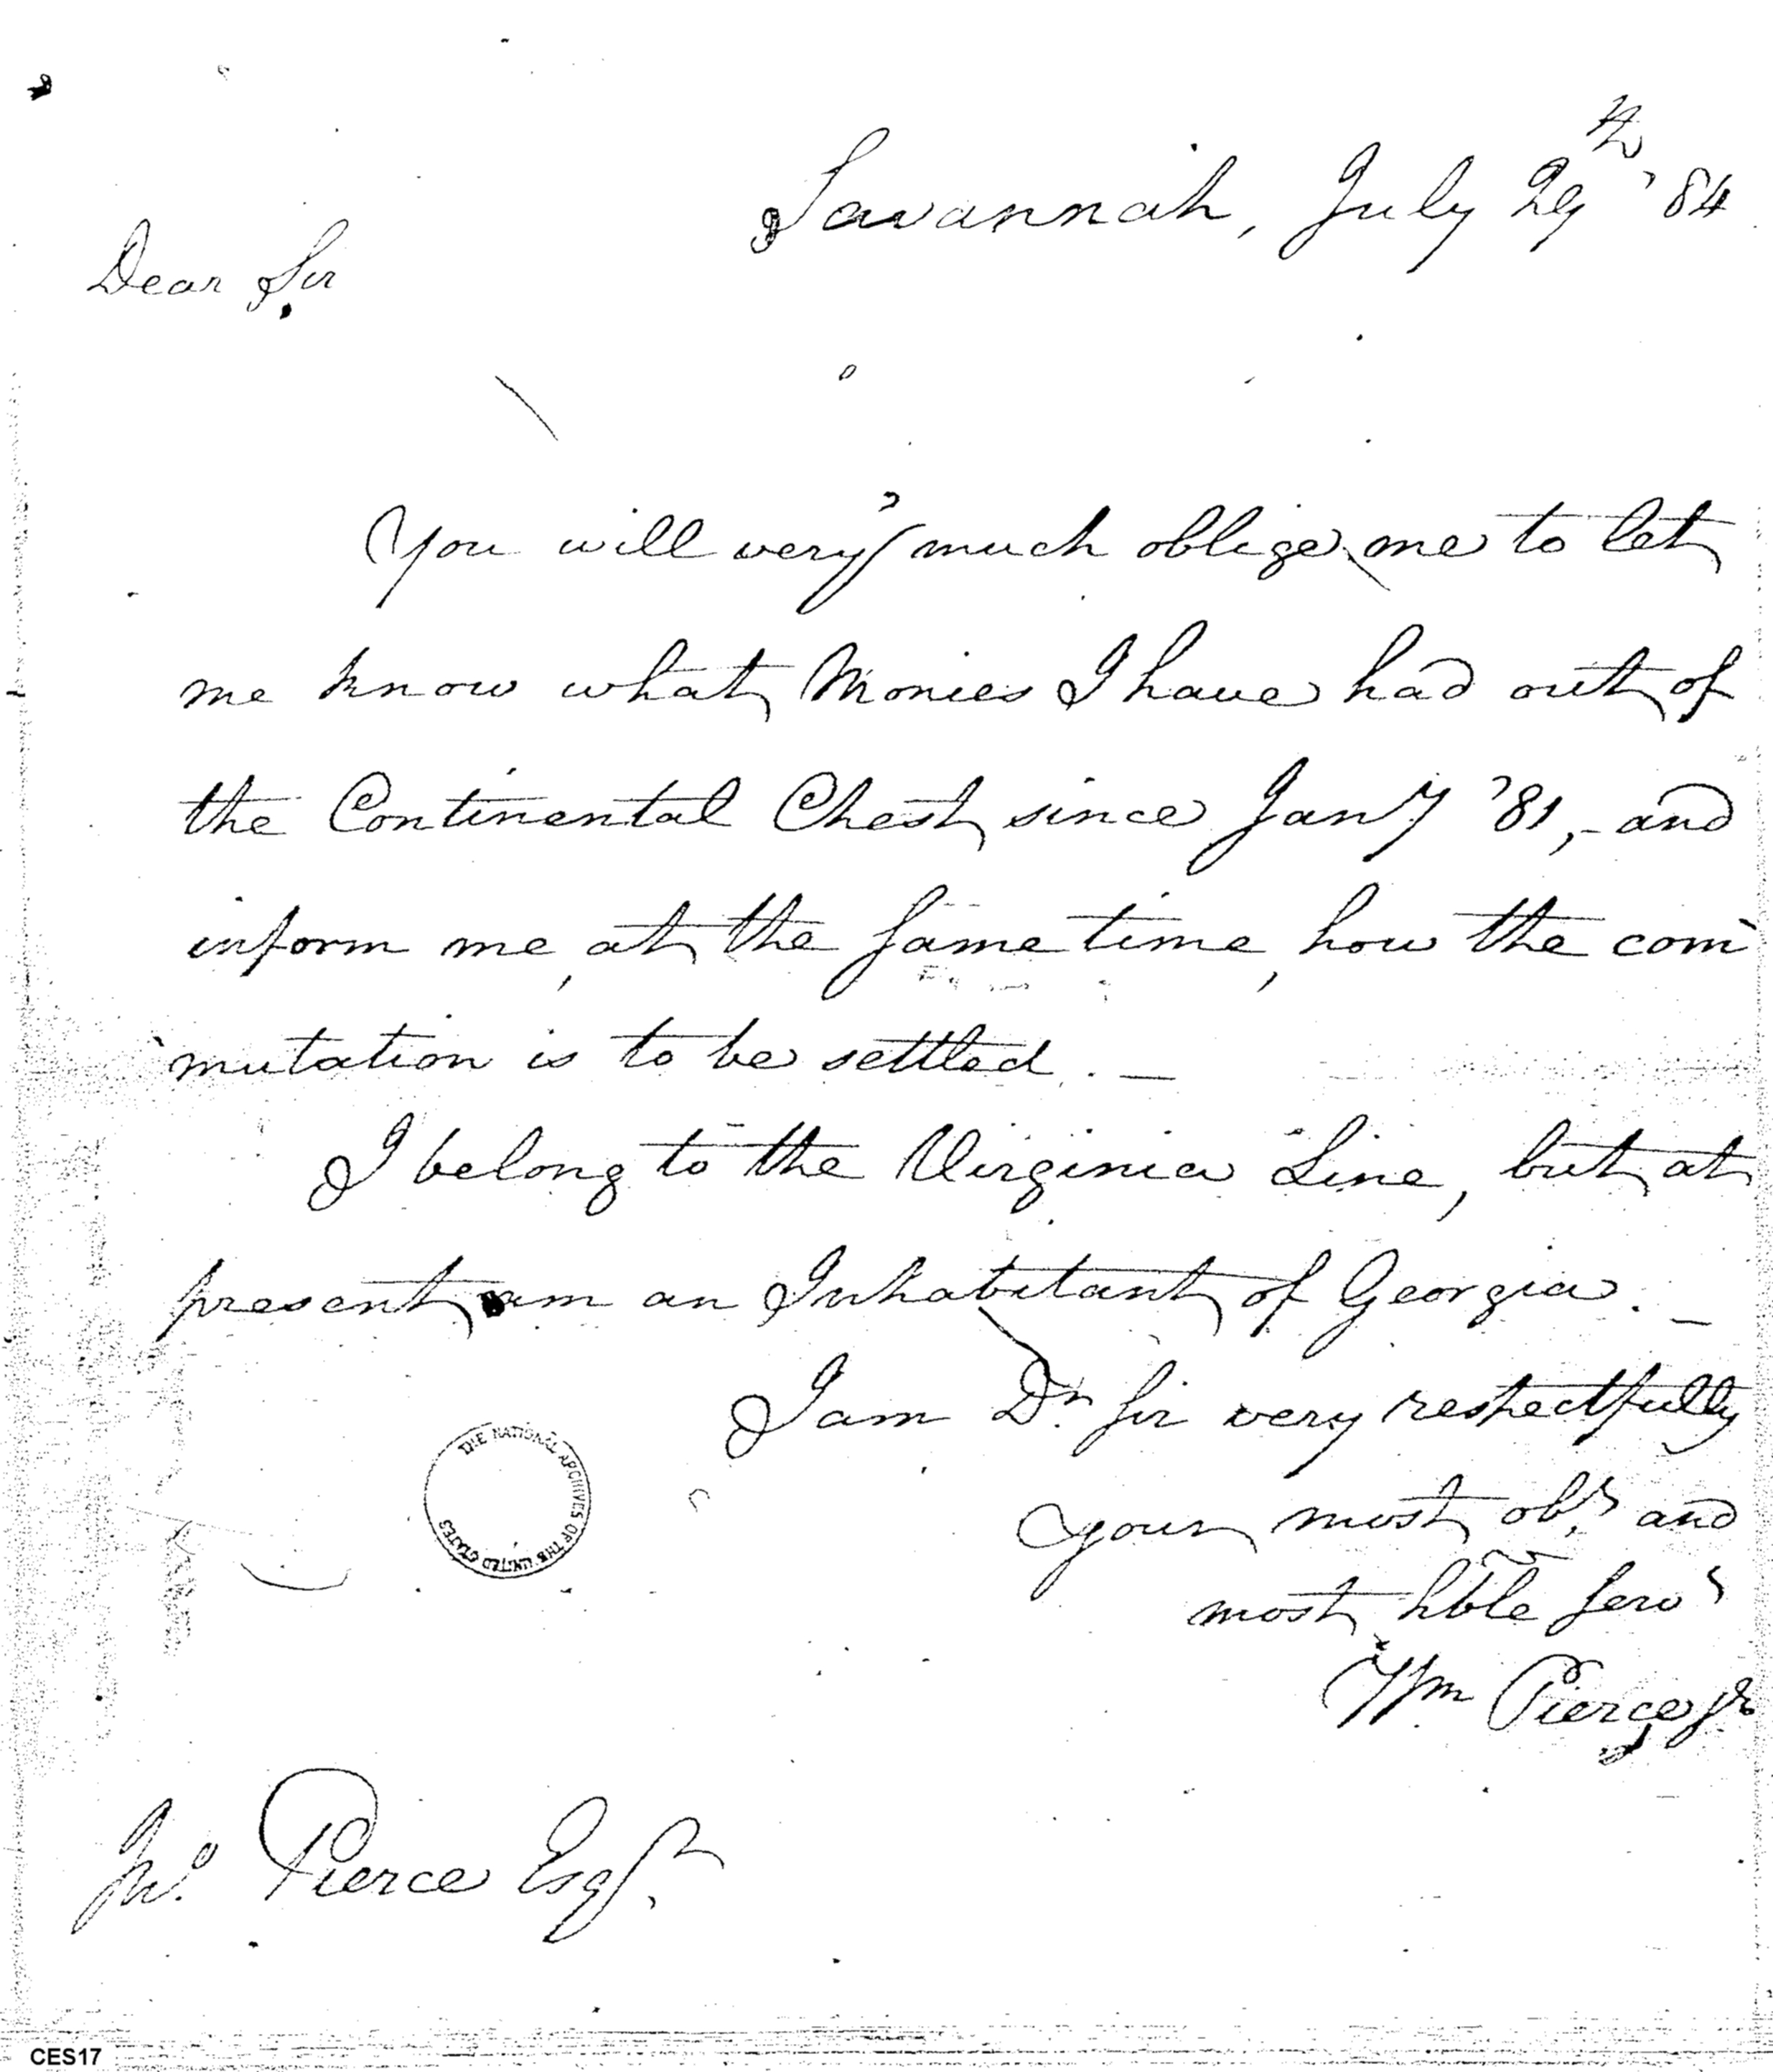 Savannah, July 29th '84
Dear Sir
You will very much oblige me to let
me know what Monies I have had out of
the Continental Chest since Jany '81,- and
inform me, at the same time, how the com
mutation is to be settled. —
I belong to the Virginia Line, but at
present am an Inhabitant of Georgia. —
I am Dr. Sir very respectfully
your most obt. and
most hble servt
Wm Pierce jr
Jno. Pierce Esqr.
THE NATIONAL ARCHIVES OF THE UNITED STATES
CES17